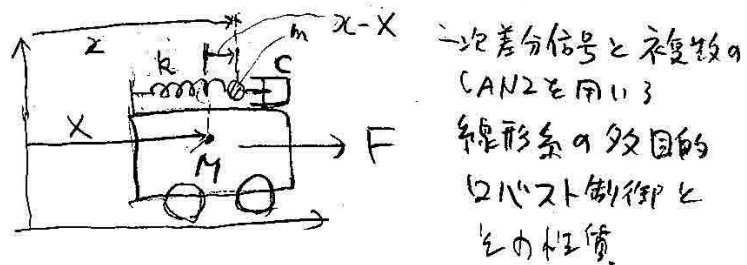 x
x-X
m
k
C
X
M
F
一次差分信号と複数の
CAN2を用いる
線形系の多目的
ロバスト制御と
その性質